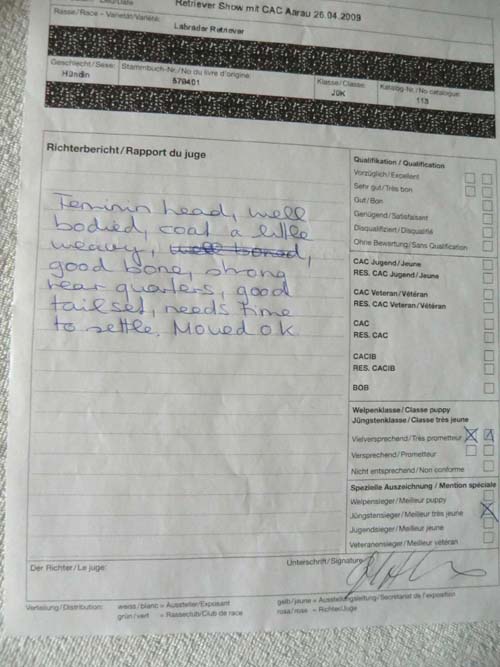 Retriever Show mit CAC Aarau 26.04.2009
Rasse/Race - Varietät/Variété:
Labrador Retriever
Geschlecht/Sexe:
Hündin
Stammbuch-Nr./No du livre d'origine:
679401
Klasse/Classe:
JÜK
Katalog-Nr./No catalogue:
113
Richterbericht/Rapport du juge
Feminin head, well
bodied, coat a little
weavy, well boned,
good bone, strong
rear quarters, good
tailset, needs time
to settle. Moved ok
Qualifikation / Qualification
Vorzüglich/Excellent
Sehr gut/Très bon
Gut/Bon
Genügend/Satisfaisant
Disqualifiziert/Disqualifié
Ohne Bewertung/Sans Qualification
CAC Jugend/Jeune
RES. CAC Jugend/Jeune
CAC Veteran/Vétéran
RES. CAC Veteran/Vétéran
CAC
RES. CAC
CACIB
RES. CACIB
BOB
Welpenklasse/Classe puppy
Jüngstenklasse/Classe très jeune
Vielversprechend/Très prometteur
1
Versprechend/Prometteur
Nicht entsprechend/Non conforme
Spezielle Auszeichnung / Mention spéciale
Welpensieger/Meilleur puppy
Jüngstensieger/Meilleur très jeune
Jugendsieger/Meilleur jeune
Veteranensieger/Meilleur vétéran
Der Richter/Le juge:
Unterschrift/Signature
Verteilung/Distribution:
weiss/blanc = Aussteller/Exposant
grün/vert = Rasseclub/Club de race
gelb/jaune = Ausstellungsleitung/Secrétariat de l'exposition
rosa/rose = Richter/Juge